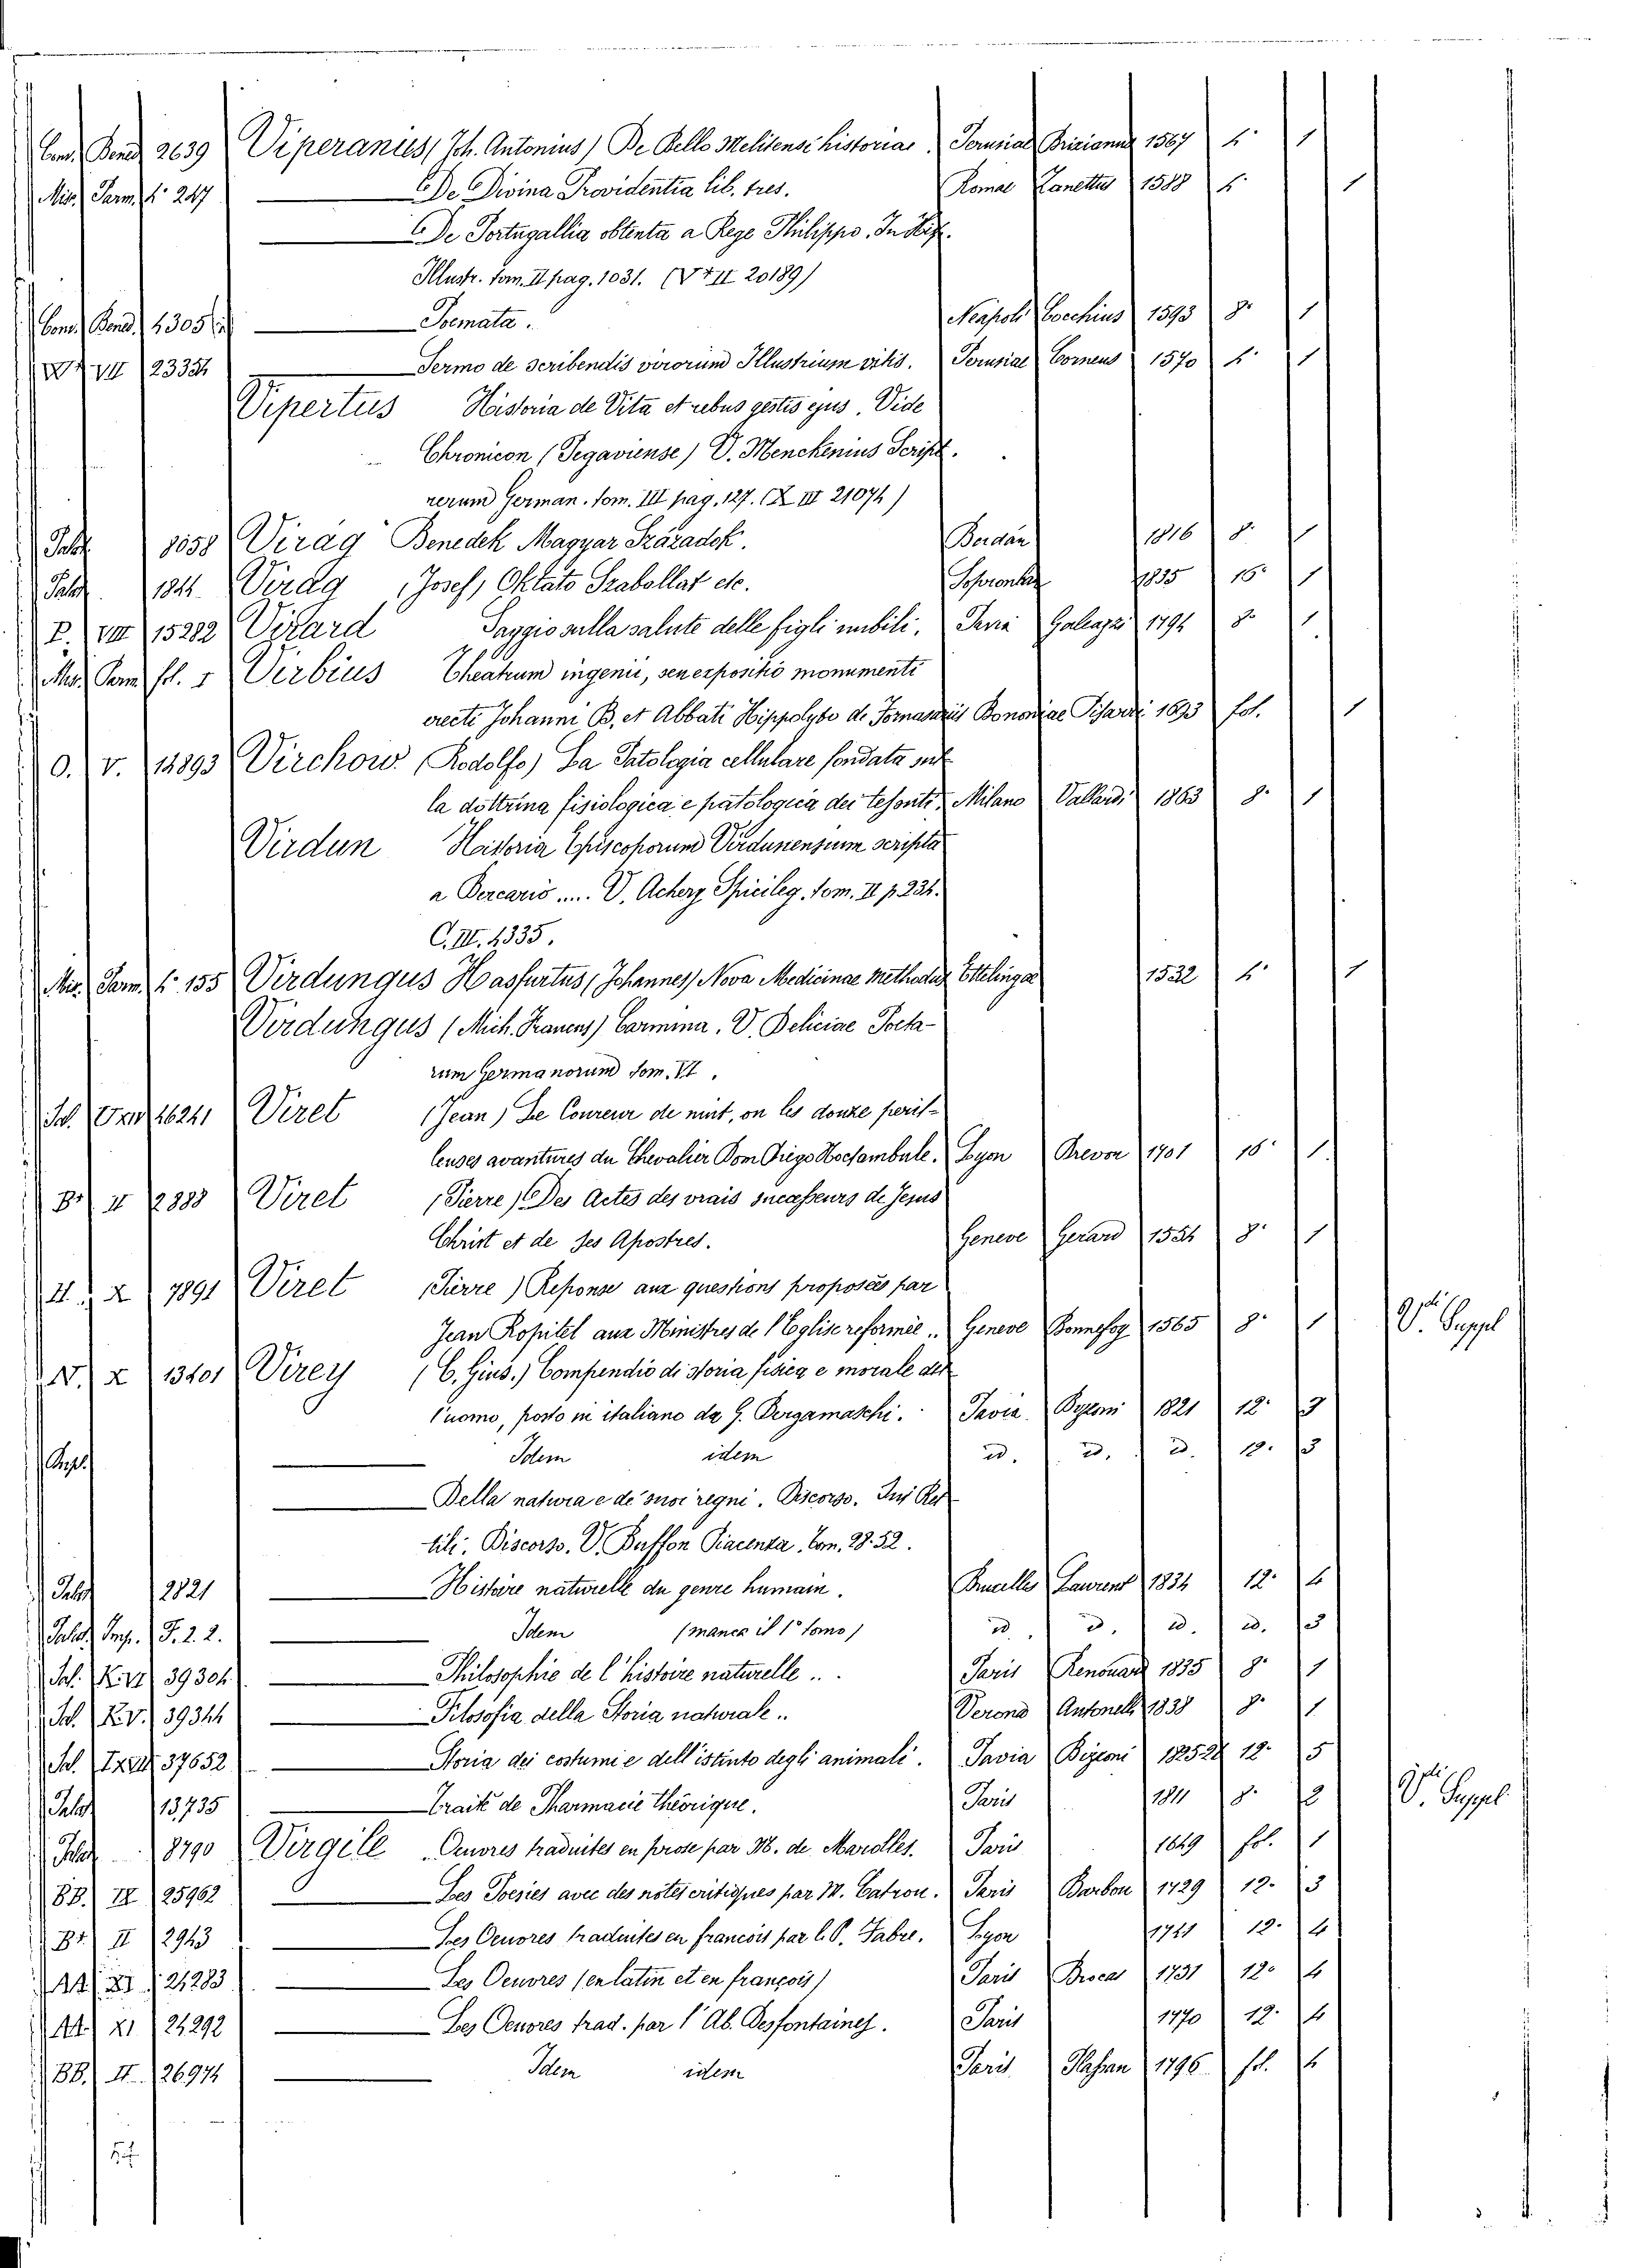 Com. Bened. 2639 Viperanus (Joh. Antonius) De Bello Melitensi historiae. Perusiae Brixianus 1567 4° 1
Mis. Parm. 4° 247 De Divina Providentia lib. tres. Romae Zanettus 1588 4° 1
De Portugallia obtenta a Rege Philippo. In Hisp.
Illustr. tom. II pag. 1031. (V† II 20189)
Com. Bened. 4305 Poemata. Neapoli Cocchius 1593 8° 1
VII 23354 Sermo de scribendis virorum Illustrium vitis. Perusiae 1570 4° 1
Vipertus Historia de Vita et rebus gestis ejus. Vide
Chronicon (Pegaviense) V. Menckenius Script.
rerum German. tom. III pag. 127. (X III 21074)
1058 Virág Benedek Magyar Százádok. Budán 1816 8° 1
1844 Virág (Josef) Oktató Szabollat etc. 1835 16° 1
P. VIII 15282 Virard Saggio sulla salute delle figli nubili. Pavia Galeazzi 1794 8° 1
Mis. Parm. fol. 1 Virbius Theatrum ingenii, seu expositio monumenti
erecti Johanni B. et Abbati Hippolyto de Fornasariis Bononiae Pisarri 1693 fol. 1
O. V. 14893 Virchow (Rodolfo) La Patologia cellulare fondata sul-
la dottrina fisiologica e patologica dei tessuti. Milano Vallardi 1863 8° 1
Virdun Historia Episcoporum Virdunensium scripta
a Bercario .... V. Achery Spicileg. tom. II p. 234.
C. III. 4335.
Mis. Parm. 4° 155 Virdungus Hasfurtus (Johannes) Nova Medicinae methodus Ettelingae 1532 4° 1
Virdungus (Mich. Francus) Carmina. V. Deliciae Poeta-
rum Germanorum tom. VI.
16241 Viret (Jean) Le Coureur de nuit, ou les douze peril-
leuses avantures du Chevalier Dom Diego Hoctambule. Lyon Brevon 1701 16° 1
B† II 2888 Viret (Pierre) Des Actes des vrais successeurs de Jesus
Christ et de ses Apostres. Geneve Gerard 1554 8° 1
II. X 7891 Viret (Pierre) Reponse aux questions proposées par
Jean Ropitel aux Ministres de l'Eglise reformée.. Geneve Bonnefoy 1565 8° 1 V. Suppl
N. X 13401 Virey (C. Gius.) Compendio di storia fisica e morale del-
l'uomo, posto in italiano da G. Bergamaschi. Pavia Bizzoni 1821 12° 3
Suppl. Idem idem id. id. id. 12. 3
Della natura e de' suoi regni. Discorso. Sui Ret-
tili. Discorso. V. Buffon Piacenza. tom. 28. 52.
2821 Histoire naturelle du genre humain. Bruxelles Laurent 1834 12° 4
Imp. F. 2. 2. Idem (manca il 1° tomo) id. id. id. id. 3
39304 Philosophie de l'histoire naturelle... Paris Renouard 1835 8° 1
39344 Filosofia della Storia naturale.. Verona Antonelli 1838 8° 1
37652 Storia dei costumi e dell'istinto degli animali. Pavia Bizzoni 1825.28 12° 5
13,735 Traité de Pharmacie théorique. Paris 1811 8° 2 V. Suppl
8790 Virgile Oeuvres traduites en prose par M. de Marolles. Paris 1649 fol. 1
BB. IX 25962 Les Poesies avec des notes critiques par M. Catrou. Paris Barbou 1729 12° 3
B† II 2943 Les Oeuvres traduites en francois par l. P. Fabre. Lyon 1741 12° 4
AA XI 24283 Les Oeuvres (en latin et en françois) Paris Brocas 1731 12° 4
AA XI 24292 Les Oeuvres trad. par l'Ab. Desfontaines. Paris 1770 12° 4
BB. II 26974 Idem idem Paris Plassan 1796 fol. 4